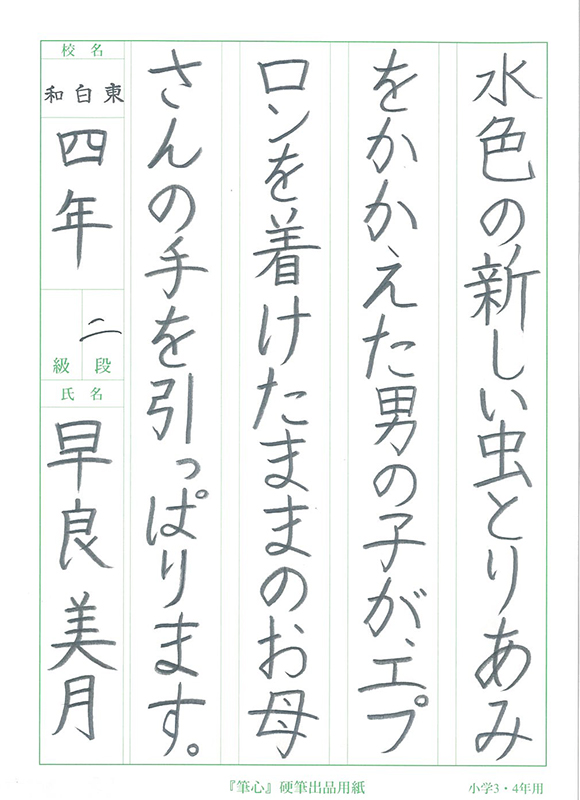 水色の新しい虫とりあみ
をかかえた男の子が、エプ
ロンを着けたままのお母
さんの手を引っぱります。
校名
和白東
四年
二
級 段
氏名
早良美月
『筆心』硬筆出品用紙
小学3・4年用